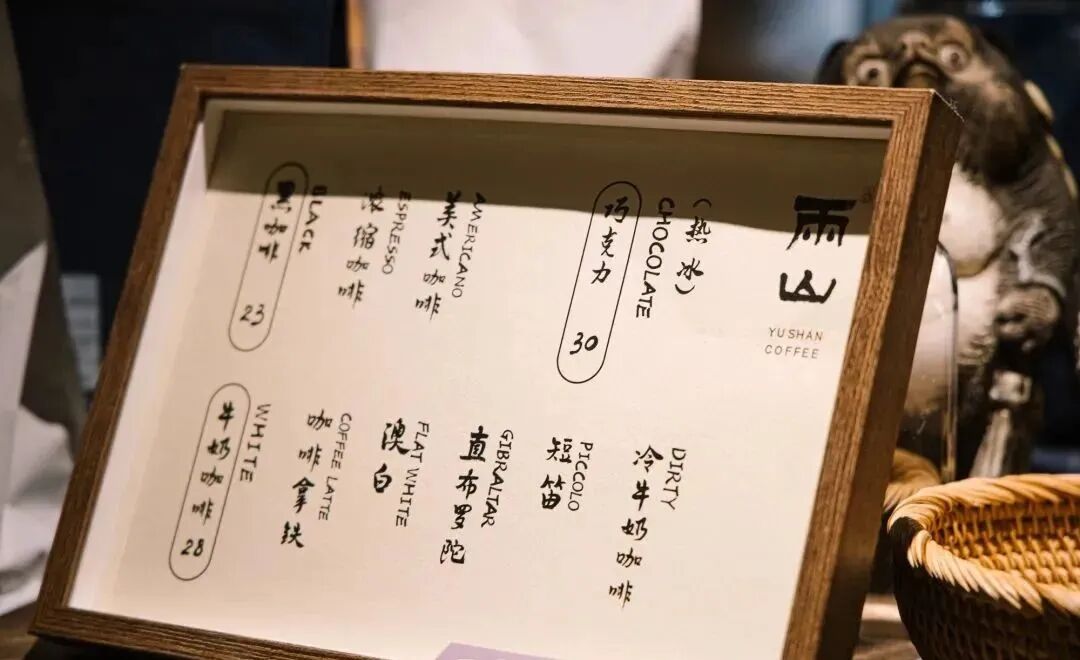 雨山
YUSHAN
COFFEE
(热 冰)
CHOCOLATE
巧克力 30
AMERICANO
美式咖啡
ESPRESSO
浓缩咖啡
BLACK
黑咖啡 23
DIRTY
冷牛奶咖啡
PICCOLO
短笛
GIBRALTAR
直布罗陀
FLAT WHITE
澳白
COFFEE LATTE
咖啡拿铁
WHITE
牛奶咖啡 28